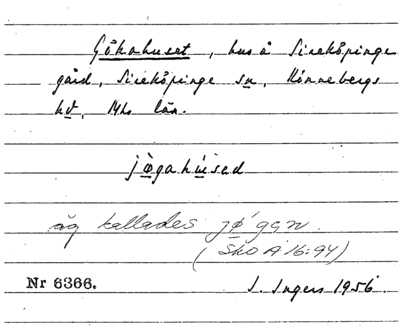 Gökahuset, hus å Sireköpinge
gård, Sireköpinge sn, Rönnebergs
hd, Mhs län.
jø̀gahùsed
äg kallades jø´ggn.
(Sko A 16:94)
Nr 6366.
I. Ingers 1956